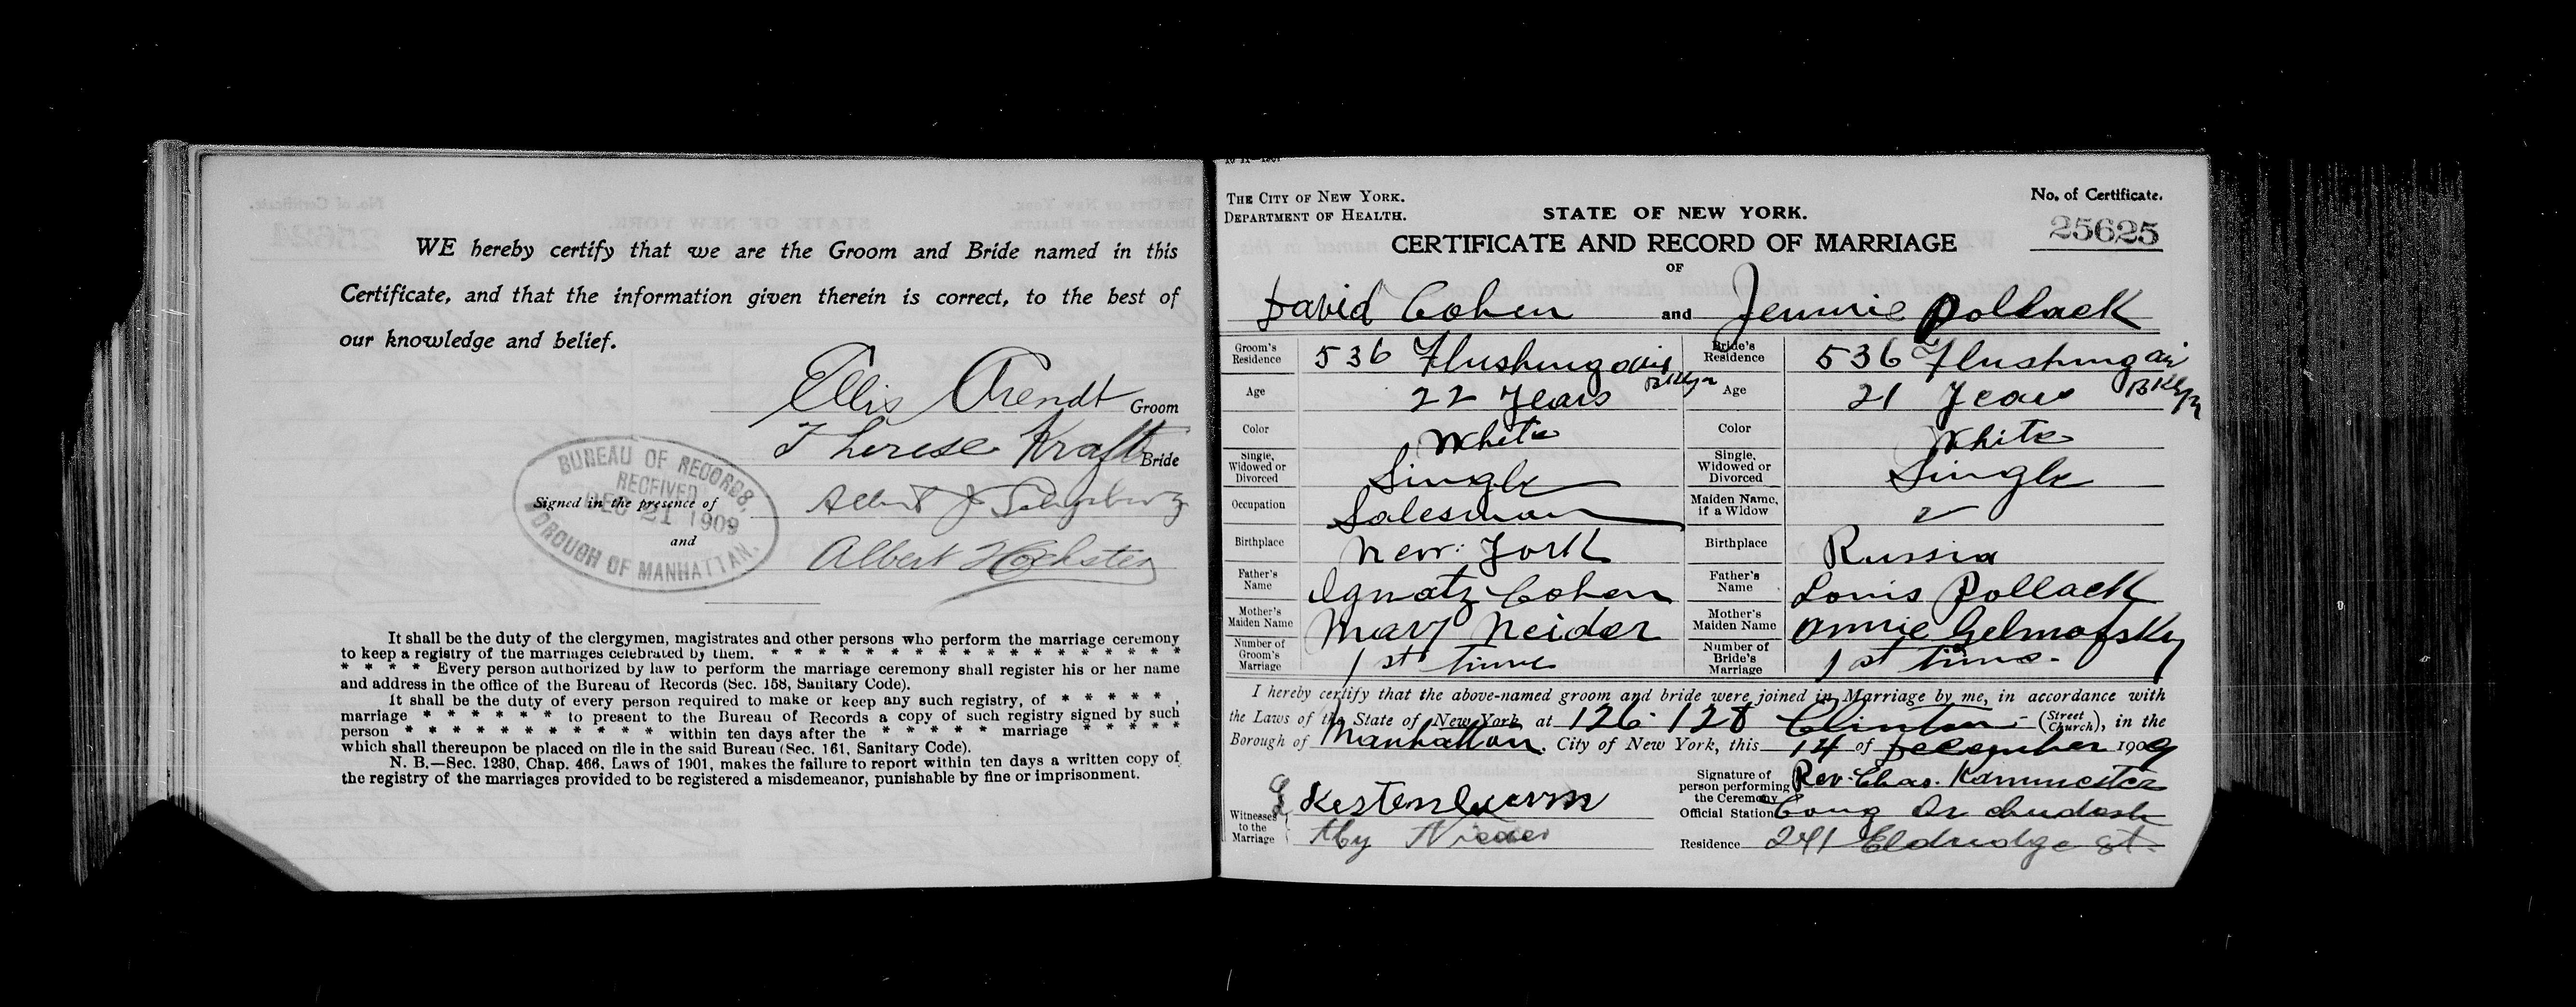 WE hereby certify that we are the Groom and Bride named in this
Certificate, and that the information given therein is correct, to the best of
our knowledge and belief.
Ellis Arendt Groom
Therese Kraft Bride
Signed in the presence of Albert J
and
Albert Hochster
BUREAU OF RECORDS,
RECEIVED
DEC 21 1909
BOROUGH OF MANHATTAN.
It shall be the duty of the clergymen, magistrates and other persons who perform the marriage ceremony
to keep a registry of the marriages celebrated by them. * * * * * * * * * * * * * * * * *
* * * * Every person authorized by law to perform the marriage ceremony shall register his or her name
and address in the office of the Bureau of Records (Sec. 158, Sanitary Code).
It shall be the duty of every person required to make or keep any such registry, of * * * * * ,
marriage * * * * * * to present to the Bureau of Records a copy of such registry signed by such
person * * * * * * * * * * * within ten days after the * * * * * marriage * * * * *
which shall thereupon be placed on file in the said Bureau (Sec. 161, Sanitary Code).
N. B.—Sec. 1280, Chap. 466, Laws of 1901, makes the failure to report within ten days a written copy of
the registry of the marriages provided to be registered a misdemeanor, punishable by fine or imprisonment.
THE CITY OF NEW YORK.
DEPARTMENT OF HEALTH.
STATE OF NEW YORK.
No. of Certificate.
25625
CERTIFICATE AND RECORD OF MARRIAGE
OF
David Cohen and Jennie Pollack
Groom's Residence 536 Flushing ave Bklyn Bride's Residence 536 Flushing av Bklyn
Age 22 Years Age 21 Years
Color White Color White
Single, Widowed or Divorced Single Single, Widowed or Divorced Single
Occupation Salesman Maiden Name, if a Widow
Birthplace New York Birthplace Russia
Father's Name Ignatz Cohen Father's Name Louis Pollack
Mother's Maiden Name Mary Neider Mother's Maiden Name Annie Gelmofsky
Number of Groom's Marriage 1st time Number of Bride's Marriage 1st time.
I hereby certify that the above-named groom and bride were joined in Marriage by me, in accordance with
the Laws of the State of New York at 126-128 Clinton (Street Church), in the
Borough of Manhattan, City of New York, this 14 of December 1909
Signature of person performing the Ceremony Rev. Chas. Kammester
Witnesses to the Marriage
Official Station Cong Or chudosh
Residence 241 Eldridge st.